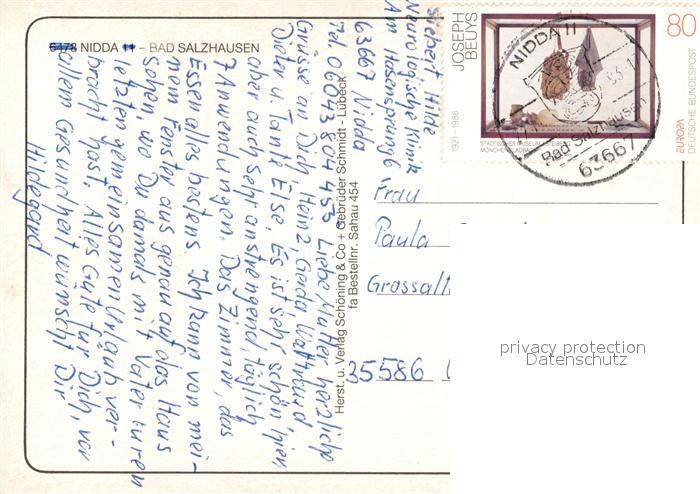 6478 NIDDA 11 – BAD SALZHAUSEN
Siebert Hilde
Neurologische Klinik
Am Hasensprung 6
63667 Nidda
Tel. 06043 804453 Liebe Mutter herzliche
Grüsse an Dich, Heinz, Gerda Waltraud,
Dieter u. Tante Else. Es ist sehr schön hier,
aber auch sehr anstrengend, täglich
7 Anwendungen. Das Zimmer, das
Essen alles bestens. Ich kann von mei-
nem Fenster aus genau auf das Haus
sehen, wo Du damals mit Vater euren
letzten gemeinsamen Urlaub ver-
bracht hast. Alles Gute für Dich, vor
allem Gesundheit wünscht Dir
Hildegard
Herst. u. Verlag Schöning & Co + Gebrüder Schmidt - Lübeck
fa Bestellnr. Sahau 454
JOSEPH
BEUYS
1921–1986
80
STÄDTISCHES MUSEUM ABTEIBERG
MÖNCHENGLADBACH
EUROPA
DEUTSCHE BUNDESPOST
NIDDA 11
Bad Salzhausen
63667
Frau
Paula
Grossalt
35586
privacy protection
Datenschutz